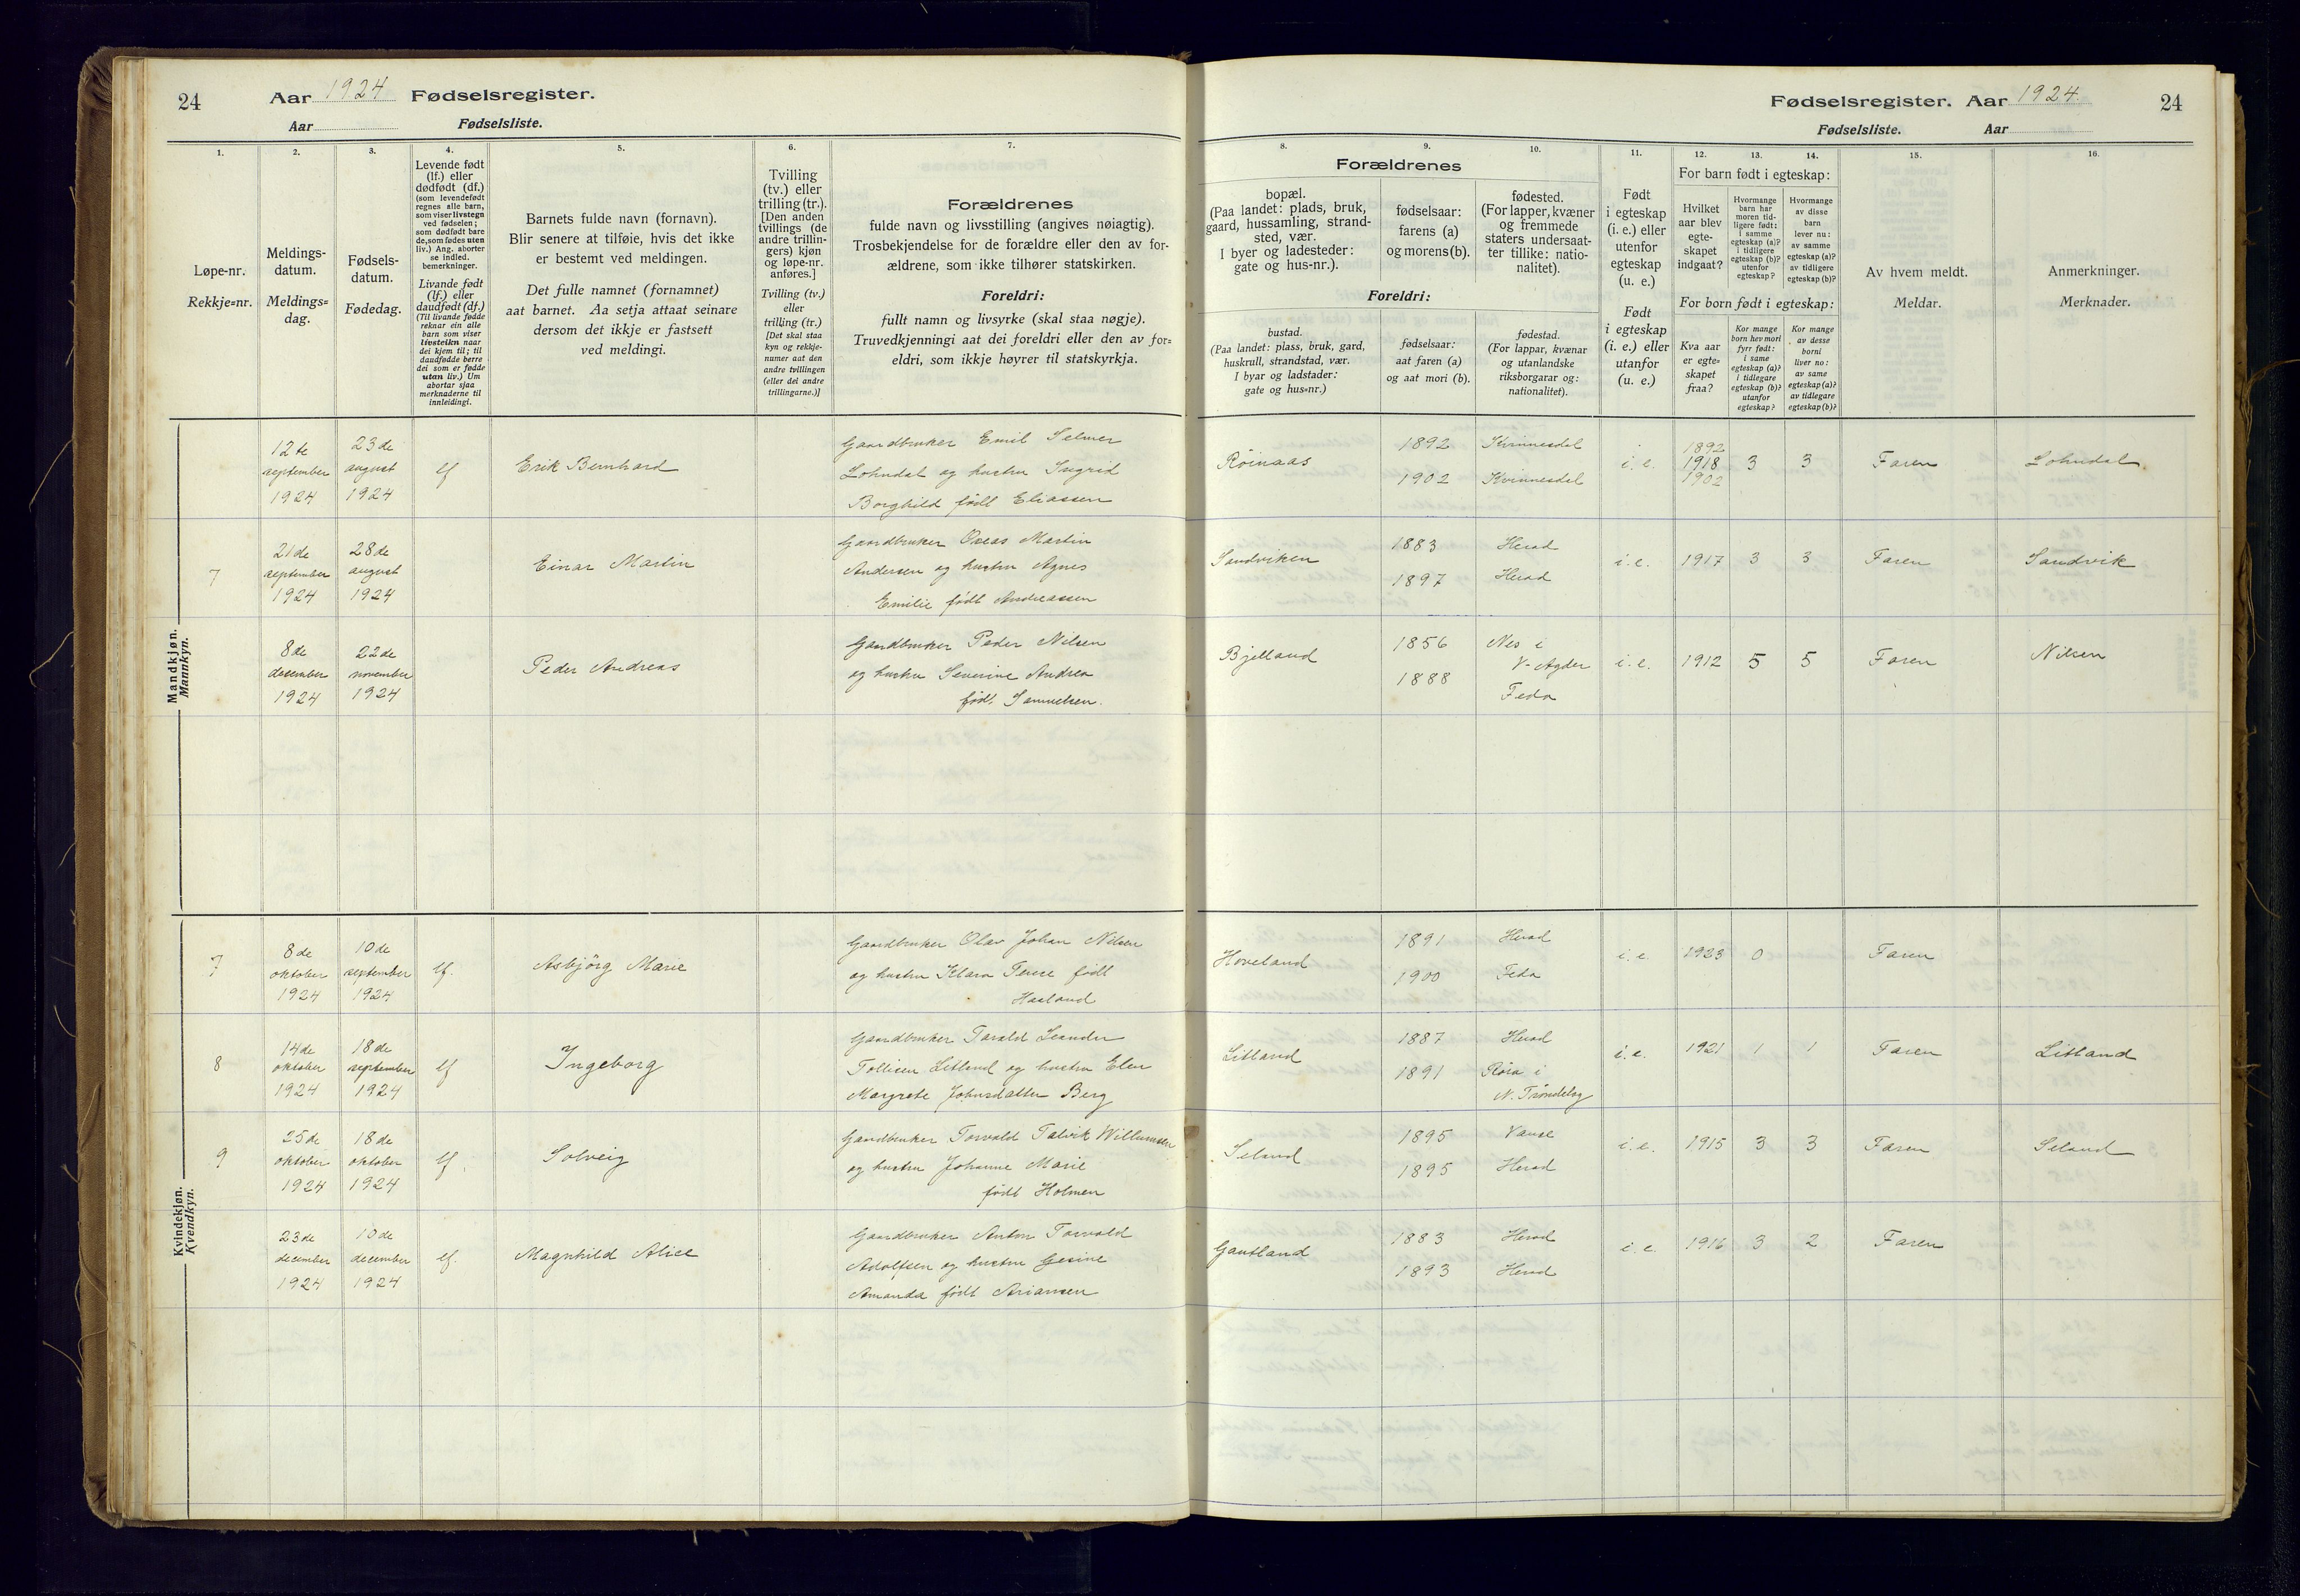 24
Aar 1924 Fødselsregister.
Aar
Fødselsliste.
1.
Løpe-nr.
Rekkje=nr.
2.
Meldings-
datum.
Meldings=
dag.
3.
Fødsels-
datum.
Fødedag.
4.
Levende født
(lf.) eller
dødfødt (df.)
(som levendefødt
regnes alle barn,
som viser livstegn
ved fødselen;
som dødfødt bare
de, som fødes uten
liv.) Ang. aborter
se indled.
bemerkninger.
Livande født
(lf.) eller
daudfødt (df.)
(Til livande fødde
reknar ein alle
barn som viser
livsteikn naar
dei kjem til; til
daudfødde berre
dei som er fødde
utan liv.) Um
abortar sjaa
merknaderne til
innleidingi.
5.
Barnets fulde navn (fornavn).
Blir senere at tilføie, hvis det ikke
er bestemt ved meldingen.
Det fulle namnet (fornamnet)
aat barnet. Aa setja attaat seinare
dersom det ikkje er fastsett
ved meldingi.
6.
Tvilling
(tv.) eller
trilling (tr.).
[Den anden
tvillings (de
andre trillin-
gers) kjøn
og løpe-nr.
anføres.]
Tvilling (tv.)
eller
trilling (tr.)
[Det skal staa
kyn og rekkje-
numer aat den
andre tvillingen
(eller dei andre
trillingarne.)]
7.
Forældrenes
fulde navn og livsstilling (angives nøiagtig).
Trosbekjendelse for de forældre eller den av for-
ældrene, som ikke tilhører statskirken.
Foreldri:
fullt namn og livsyrke (skal staa nøgje).
Truvedkjenningi aat dei foreldri eller den av for=
eldri, som ikkje høyrer til statskyrkja.
Mandkjøn.
Mannkyn.
12te
september
1924
23de
august
1924
lf
Erik Bernhard
Gaardbruker Emil Selmer
Lohndal og hustru Ingrid
Borghild født Eliassen
7
21de
september
1924
28de
august
1924
Einar Martin
Gaardbruker Oseas Martin
Andersen og hustru Agnes
Emilie født Andreassen
8de
desember
1924
22de
november
1924
Peder Andreas
Gaardbruker Peder Nilsen
og hustru Severine Andrea
født Samuelsen.
Kvindekjøn.
Kvendkyn.
7
8de
oktober
1924
10de
september
1924
lf.
Asbjörg Marie
Gaardbruker Olav Johan Nilsen
og hustru Klara Tense født
Haaland
8
14de
oktober
1924
18de
september
1924
lf
Ingeborg
Gaardbruker Tarald Leander
Tollisen Litland og hustru Elen
Margrete Johnsdatter Berg
9
25de
oktober
1924
18de
oktober
1924
lf.
Solveig
Gaardbruker Torvald Talvik Willumsen
og hustru Johanne Marie
født Holmen
23de
december
1924
10de
december
1924
lf.
Magnhild Alice
Gaardbruker Anton Torvald
Adolfsen og hustru Gesine
Amanda født Ariansen
Fødselsregister. Aar 1924.
24
Fødselsliste.
Aar
8.
Forældrenes
bopæl.
(Paa landet: plads, bruk,
gaard, hussamling, strand-
sted, vær.
I byer og ladesteder:
gate og hus-nr.).
Foreldri:
bustad.
(Paa landet: plass, bruk, gard,
huskrull, strandstad, vær.
I byar og ladstader:
gate og hus=nr.)
9.
fødselsaar:
farens (a)
og morens (b).
fødselsaar:
aat faren (a)
og aat mori (b).
10.
fødested.
(For lapper, kvæner
og fremmede
staters undersaat-
ter tillike: natio-
nalitet).
fødestad.
(For lappar, kvænar
og utanlandske
riksborgarar og:
nationalitet).
11.
Født
i egteskap
(i. e.) eller
utenfor
egteskap
(u. e.)
Født
i egteskap
(i. e.) eller
utanfor
(u. e.)
For barn født i egteskap:
12.
Hvilket
aar blev
egte-
skapet
indgaat?
13.
Hvormange
barn har
moren tid-
ligere født:
i samme
egteskap (a)?
i tidligere
egteskap (b)?
utenfor
egteskap?
14.
Hvormange
av disse
barn
lever nu:
av samme
egteskap (a)?
av tidligere
egteskap (b)?
For born født i egteskap:
Kva aar
er egte=
skapet
fraa?
Kor mange
born hev mori
fyrr født:
i same
egteskap (a)?
i tidlegare
egteskap (b)?
utanfor
egteskap?
Kor mange
av desse
borni
liver no:
av same
egteskap (a)?
av tidlegare
egteskap (b)?
15.
Av hvem meldt.
Meldar.
16.
Anmerkninger.
Merknader.
Röinaas
1892
1902
Kvinnesdal
Kvinnesdal
i. e.
1892
1918
1902
3
3
Faren
Lohndal
Sandviken
1883
1897
Herad
Herad
i. e.
1917
3
3
Faren
Sandvik
Bjelland
1856
1888
Nes i
V-Agder
Feda
i. e.
1912
5
5
Faren
Nilsen
Hoveland
1891
1900
Herad
Feda
i. e.
1923
0
Faren
Litland
1887
1891
Herad
Röra i
N. Tröndelag
i. e.
1921
1
1
Faren
Litland
Seland
1895
1895
Vanse
Herad
i. e.
1915
3
3
Faren
Seland
Gautland
1883
1893
Herad
Herad
i. e.
1916
3
2
Faren